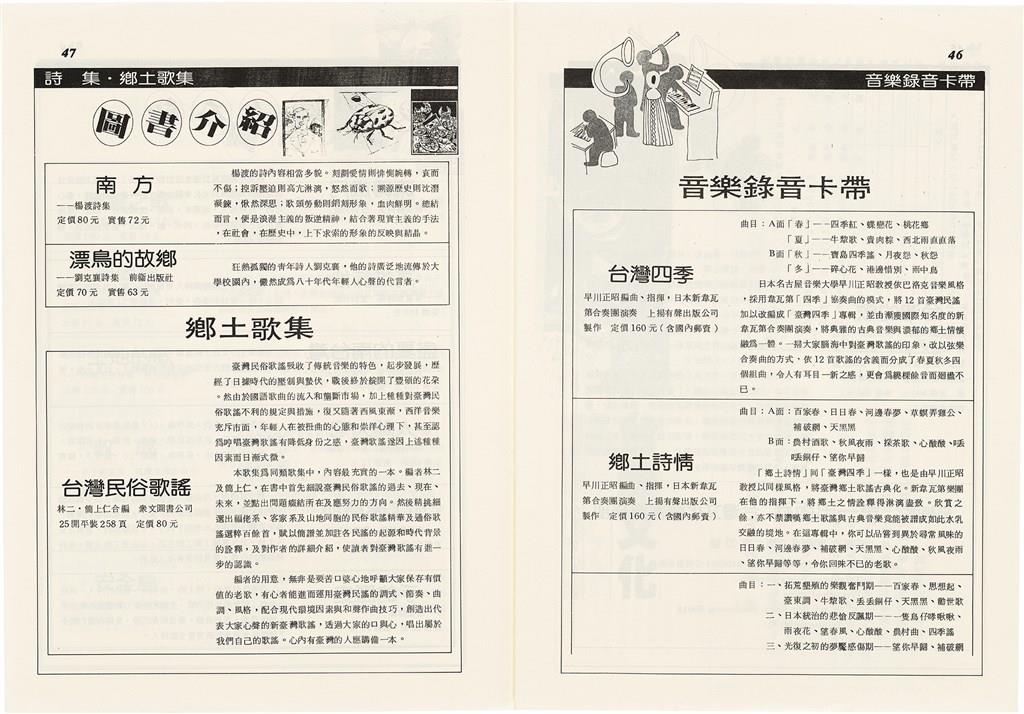 46
音樂錄音卡帶
音樂錄音卡帶
台灣四季
早川正昭編曲、指揮，日本新韋瓦
第合奏團演奏　上揚有聲出版公司
製作　定價160元(含國內郵資)
曲目：A面「春」——四季紅、蝶戀花、桃花鄉
「夏」——牛犂歌、賣肉粽、西北雨直直落
B面「秋」——寶島四季謠、月夜怨、秋怨
「多」——碎心花、港邊惜別、雨中鳥
日本名古屋音樂大學早川正昭敎授依巴洛克音樂風格
，採用韋瓦第「四季」協奏曲的模式，將12首臺灣民謠
加以改編成「臺灣四季」專輯，並由漸獲國際知名度的新
韋瓦第合奏團演奏，將典雅的古典音樂與濃郁的鄉土情懷
融爲一體。一掃大家腦海中對臺灣歌謠的印象，改以弦樂
合奏曲的方式，依12首歌謠的含義而分成了春夏秋多四
個組曲，令人有耳目一新之感，更會爲繞樑餘音而廻盪不
已。
鄉土詩情
早川正昭編曲、指揮，日本新韋瓦
第合奏團演奏　上揚有聲出版公司
製作　定價160元(含國內郵資)
曲目：A面：百家春、日日春、河邊春夢、草螟弄雞公、
補破網、天黑黑
B面：農村酒歌、秋風夜雨、採茶歌、心酸酸、丢
丢銅仔、望你早歸
「鄉土詩情」同「臺灣四季」一樣，也是由早川正昭
敎授以同樣風格，將臺灣鄉土歌謠古典化。新韋瓦第樂團
在他的指揮下，將鄉土之情詮釋得淋漓盡致。欣賞之
餘，亦不禁讚嘆鄉土歌謠與古典音樂竟能被譜成如此水乳
交融的境地。在這專輯中，你可以品嘗到異於尋常風味的
日日春、河邊春夢、補破網、天黑黑、心酸酸、秋風夜雨
、望你早歸等等，令你回味不已的老歌。
曲目：一、拓荒墾殖的樂觀奮鬥期——百家春、思想起、
臺東調、牛犂歌、丢丢銅仔、天黑黑、勸世歌
二、日本統治的悲愴反諷期——一隻鳥仔哮啾啾、
雨夜花、望春風、心酸酸、農村曲、四季謠
三、光復之初的夢魘感傷期——望你早歸、補破網
47
詩　集・鄉土歌集
圖書介紹
南方
——楊渡詩集
定價80元　實售72元
楊渡的詩內容相當多貌。刻劃愛情則悱惻婉轉，哀而
不傷；控訴壓迫則高亢淋漓，怒然而歌；溯源歷史則沈潛
凝鍊，愀然深思；歌頌勞動則銷刻形象，血肉鮮明。總結
而言，便是浪漫主義的叛逆精神，結合著現實主義的手法
，在社會，在歷史中，上下求索的形象的反映與結晶。
漂鳥的故鄉
——劉克襄詩集　前衞出版社
定價70元　實售63元
狂熱孤獨的靑年詩人劉克襄，他的詩廣泛地流傳於大
學校園內，儼然成爲八十年代年輕人心聲的代言者。
鄉土歌集
台灣民俗歌謠
林二、簡上仁合編　衆文圖書公司
25開平裝258頁　定價80元
臺灣民俗歌謠吸收了傳統音樂的特色，起步發展，歷
經了日據時代的壓制與蟄伏，戰後終於綻開了豐碩的花朶
。然由於國語歌曲的流入和壟斷市場，加上種種對臺灣民
俗歌謠不利的規定與措施，復又隨著西風東漸，西洋音樂
充斥市面，年輕人在被扭曲的心態和崇洋心理下，甚至認
爲哼唱臺灣歌謠有降低身份之感，臺灣歌謠遂因上述種種
因素而日漸式微。
本歌集爲同類歌集中，內容最充實的一本。編者林二
及簡上仁，在書中首先細說臺灣民俗歌謠的過去、現在、
未來，並點出問題癥結所在及應努力的方向。然後精挑細
選出福佬系、客家系及山地同胞的民俗歌謠精華及通俗歌
謠選粹百餘首，賦以簡譜並加註各民謠的起源和時代背景
的詮釋，及對作者的詳細介紹，使讀者對臺灣歌謠有進一
步的認識。
編者的用意，無非是要苦口婆心地呼籲大家保存有價
值的老歌，有心者能進而運用臺灣民謠的調式、節奏、曲
調、風格，配合現代環境因素與和聲作曲技巧，創造出代
表大家心聲的新臺灣歌謠，透過大家的口與心，唱出屬於
我們自己的歌謠。心內有臺灣的人應購備一本。